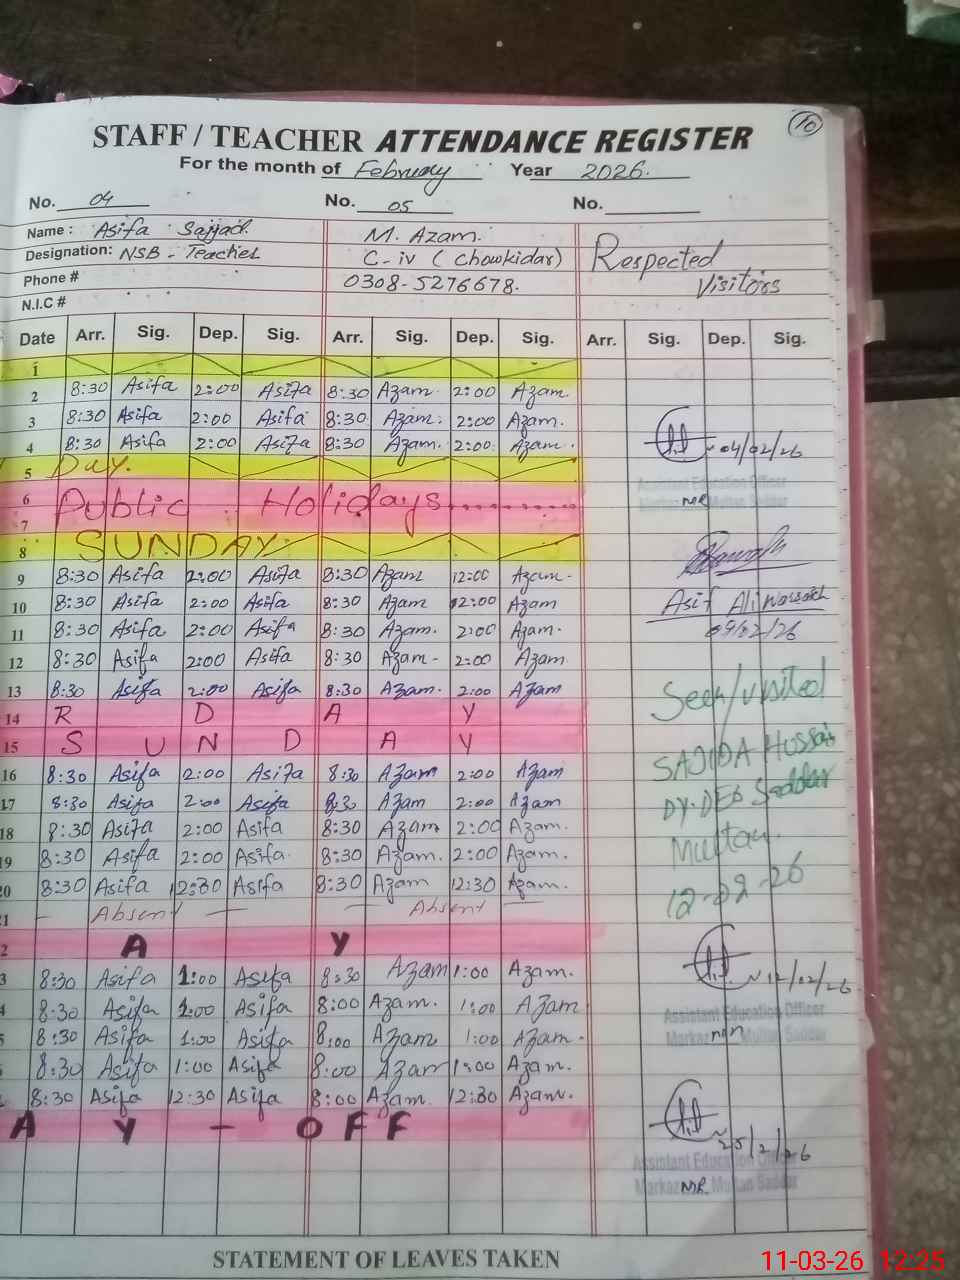 10
STAFF / TEACHER ATTENDANCE REGISTER
For the month of February Year 2026.
No. 04 No. 05 No.
Name : Asifa Sajjad M. Azam. Respected
Designation: NSB - Teacher C-iv ( Chowkidar) Visitors
Phone # 0308-5276678.
N.I.C #
Date Arr. Sig. Dep. Sig. Arr. Sig. Dep. Sig. Arr. Sig. Dep. Sig.
1
2 8:30 Asifa 2:00 Asifa 8:30 Azam. 2:00 Azam.
3 8:30 Asifa 2:00 Asifa 8:30 Azam. 2:00 Azam.
4 8:30 Asifa 2:00 Asifa 8:30 Azam. 2:00 Azam. 04/02/26
5 Day.
Assistant Education Officer
6 Public Holidays
Markaz Multan Saddar
7
8 SUNDAY
9 8:30 Asifa 2:00 Asifa 8:30 Azam 12:00 Azam.
10 8:30 Asifa 2:00 Asifa 8:30 Azam 12:00 Azam Asif Ali
11 8:30 Asifa 2:00 Asifa 8:30 Azam. 2:00 Azam. 09/02/26
12 8:30 Asifa 2:00 Asifa 8:30 Azam - 2:00 Azam
13 8:30 Asifa 2:00 Asifa 8:30 Azam. 2:00 Azam Seen/visited
14 R D A Y
15 S U N D A Y SAJIDA Hussain
16 8:30 Asifa 2:00 Asifa 8:30 Azam 2:00 Azam
17 8:30 Asifa 2:00 Asifa 8:30 Azam 2:00 Azam DY.DEO Saddar
18 8:30 Asifa 2:00 Asifa 8:30 Azam 2:00 Azam. Multan.
19 8:30 Asifa 2:00 Asifa. 8:30 Azam. 2:00 Azam.
20 8:30 Asifa 12:30 Asifa 8:30 Azam 12:30 Azam. 12-02-26
21 - Absent - - Absent -
2 A Y
3 8:30 Asifa 1:00 Asifa 8:30 Azam 1:00 Azam. 12/02/26
4 8:30 Asifa 1:00 Asifa 8:00 Azam. 1:00 Azam
Assistant Education Officer
5 8:30 Asifa 1:00 Asifa 8:00 Azam 1:00 Azam.
Markaz Multan Saddar
8:30 Asifa 1:00 Asifa 8:00 Azam 1:00 Azam.
8:30 Asifa 12:30 Asifa 8:00 Azam. 12:30 Azam.
A Y - OFF
25/2/26
Assistant Education Officer
Markaz MR Multan Saddar
STATEMENT OF LEAVES TAKEN
11-03-26 12:25